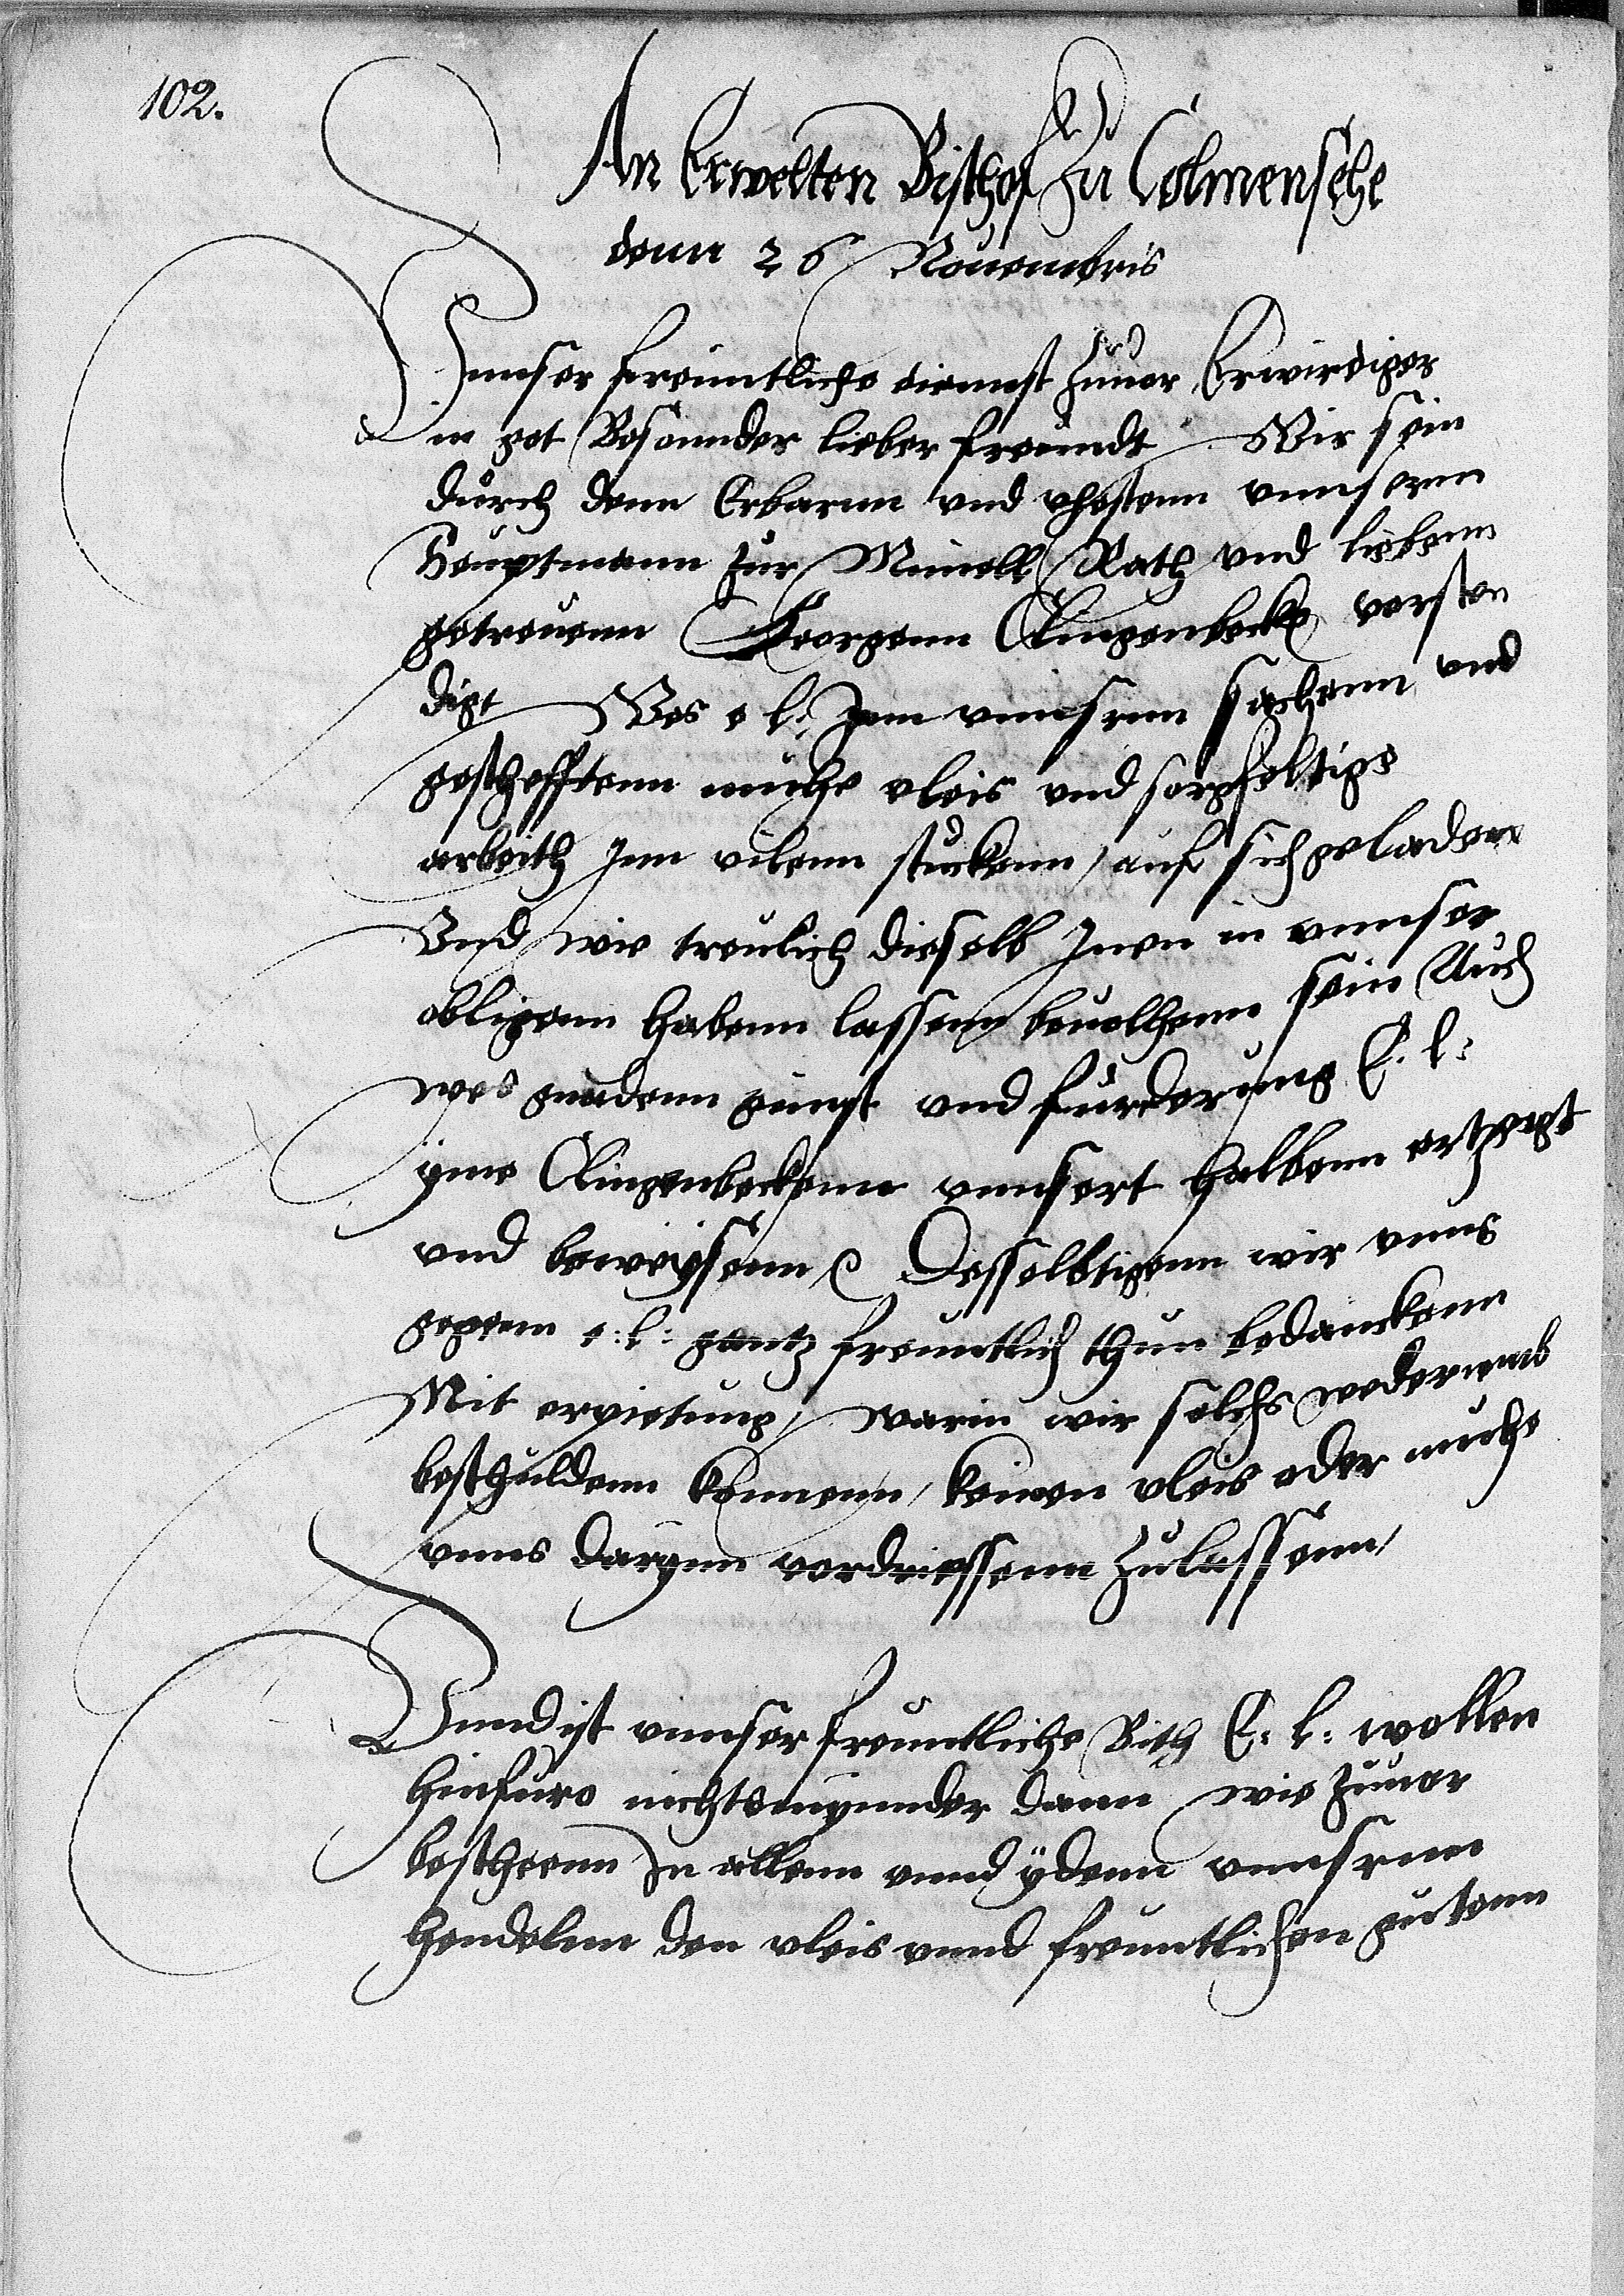 102.
An Erwelten Bischof Zu Colmensehe
denn 26 Nouembris
Vnnser freuntliche diennst zuuor Erwirdiger
in got Besonnder lieber freundt Wir sein
durch denn Erbarnn vnd vhestenn vnnsernn
Heuptmann zur Mimell Rath vnd liebenn
getreuenn Georgenn Clingenbeck versten
digt Wes e l: Inn vnnsernn sachenn vnd
geschefftenn muhe vleis vnd sorgfeltige
arbeith Inn vilenn stuckenn / auf sich geladen
Vnd wie treulich dieselb Inen in vnnser
obligenn habenn lassenn beuolhenn sein Auch
wes gnadenn gunst vnd furderung E. l:
yme Clingenbeckenn vnnsert halbenn ertzagt
vnd beweysenn Desselbtigenn wir vnns
gegenn e: l: gantz freuntlich thun bedanckenn
Mit erpietung / warin wir solchs wederumb
beschuldenn konnenn / keinen vleis oder muhe
vnns darynn verdriessenn zulassenn /
Vnnd ist vnnser freuntliche Bith E: l: wollen
hinfuro nichtsmynnder dann wie zuuor
bescheenn In allenn vnnd ydenn vnnsernn
hendelnn den vleis vnnd freuntlichen gutenn